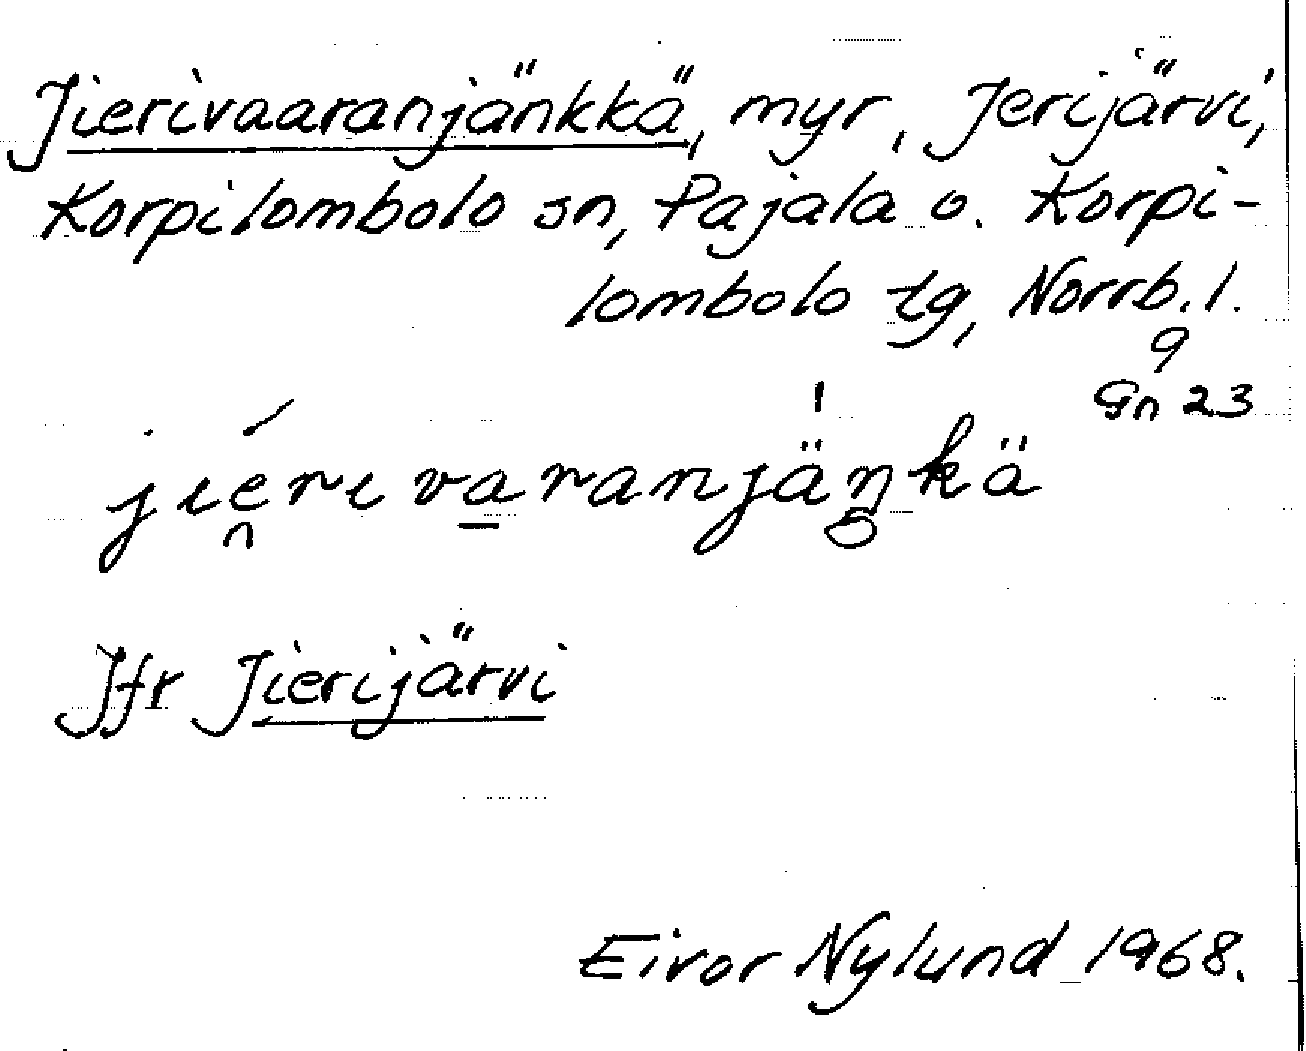 Jierivaaranjänkkä, myr, Jerijärvi,
Korpilombolo sn, Pajala o. Korpi-
lombolo tg, Norrb. l.
9
Gn 23
jierivaranjäŋkä
Jfr Jierijärvi
Eivor Nylund 1968.